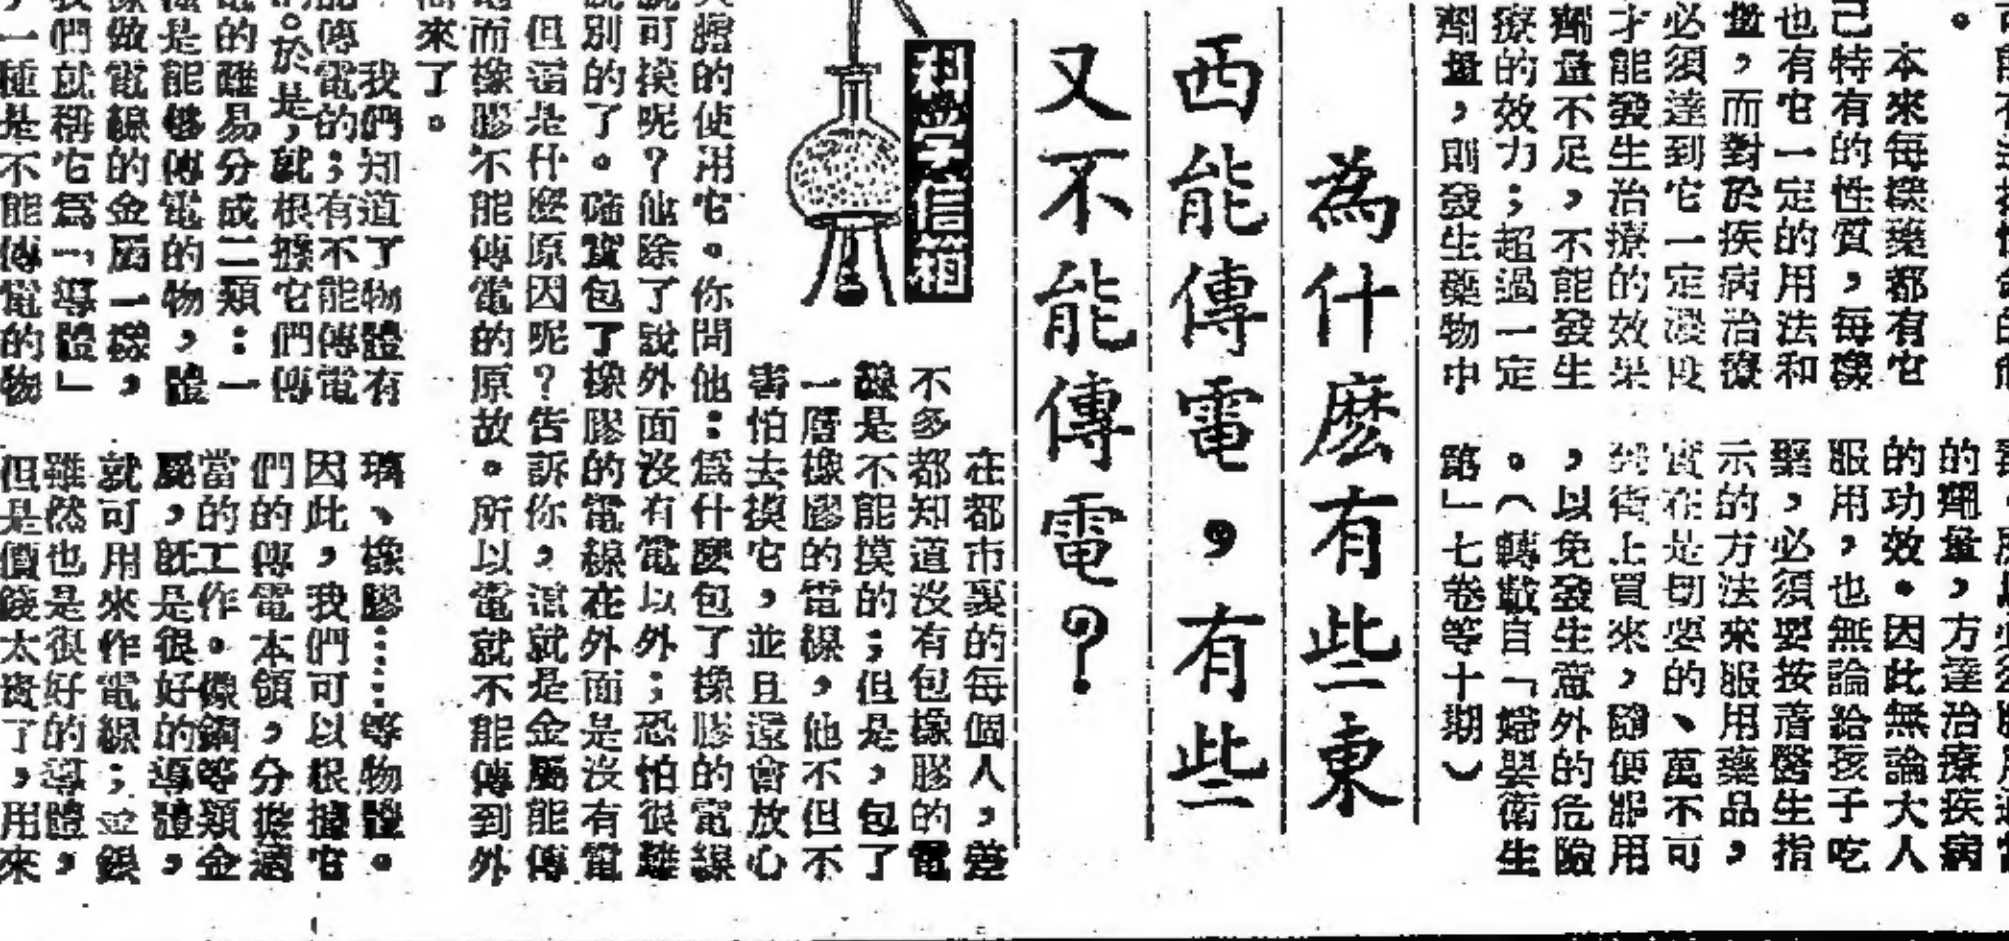 。
本來每樣藥都有它
己特有的性質，每樣
也有它一定的用法和
量，而對於疾病治療
必須達到它一定濃度
才能發生治療的效果
劑量不足，不能發生
療的效力；超過一定
劑量，則發生藥物中
的劑量，方達治療疾病
的功效。因此無論大人
服用，也無論給孩子吃
藥，必須要按着醫生指
示的方法來服用藥品，
實在是切要的、萬不可
到街上買來，隨便服用
，以免發生意外的危險
。（轉載自「婦嬰衛生
路」七卷等十期）
為什麽有些東
西能傳電，有些
又不能傳電？
科學信箱
在都市裏的每個人，差
不多都知道没有包橡膠的電
線是不能摸的；但是，包了
一層橡膠的電線，他不但不
害怕去摸它，並且還會放心
大膽的使用它。你問他：爲什麽包了橡膠的電線
就可摸呢？他除了說外面没有電以外；恐怕很難
說別的了。確實包了橡膠的電線在外面是没有電
但這是什麽原因呢？告訴你，這就是金屬能傳
而橡膠不能傳電的原故。所以電就不能傳到外
來了。
我們知道了物體有
能傳電的；有不能傳電
的。於是，就根據它們傳
電的難易分成二類：一
是能够傳電的物，體
像做電線的金屬一樣，
我們就稱它爲「導體」
，一種是不能傳電的物
璃、橡膠……等物體。
因此，我們可以根據它
們的傳電本領，分擔適
當的工作。像銅等類金
屬，既是很好的導體，
就可用來作電線；並銀
雖然也是很好的導體，
但是價錢太貴了，用來